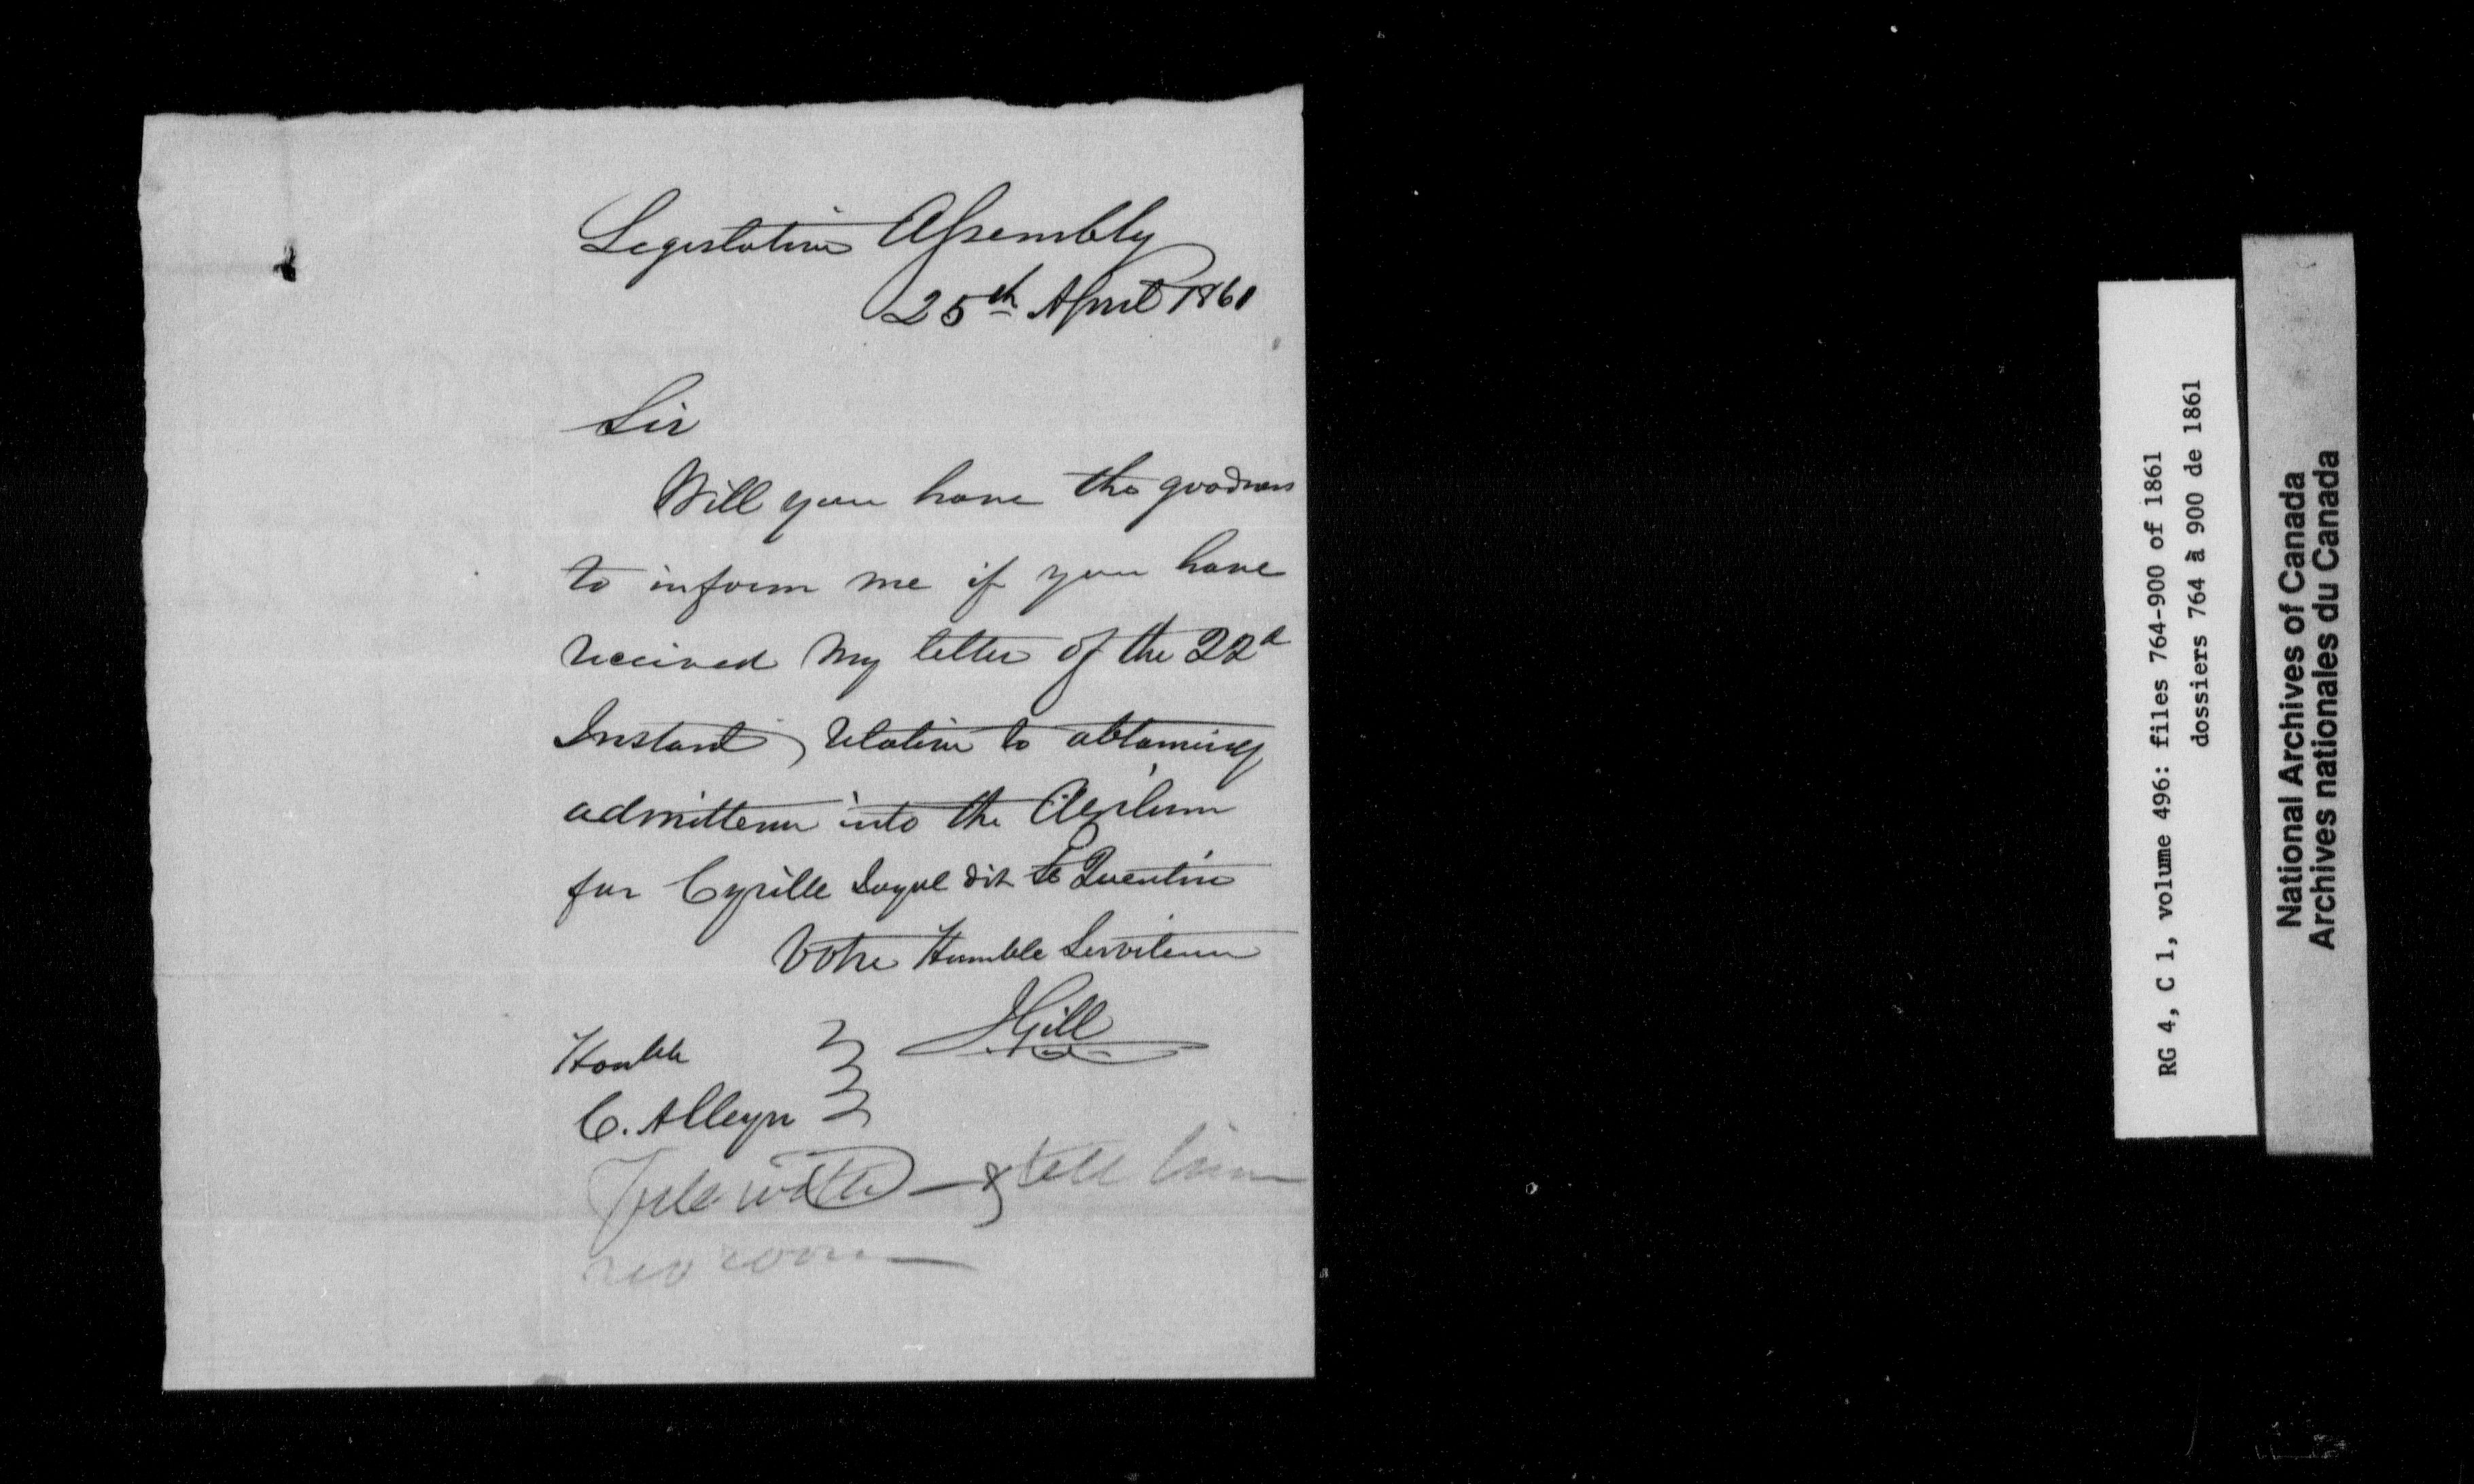 Legislative Assembly
25th April 1861
Sir
Will you have the goodness
to inform me if you have
received my letter of the 22d
Instant, relative to obtaining
admittence into the Asylum
for Cyrille dit St Quentin
Votre Humble Serviteur
JGill
Honble
C. Alleyn
File with & tell him
no room
RG 4, C 1, volume 496: files 764-900 of 1861
dossiers 764 à 900 de 1861
National Archives of Canada
Archives nationales du Canada